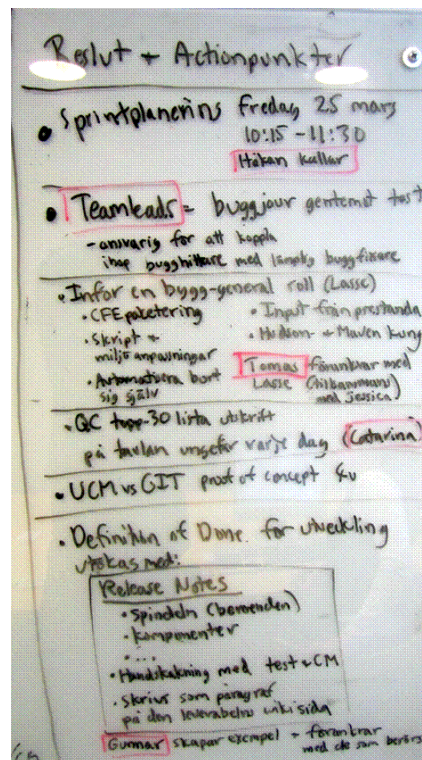 Beslut + Actionpunkter
• Sprintplanering fredag 25 mars
10:15 - 11:30
Håkan kallar
• Teamleads = buggjour gentemot test
- ansvarig för att koppla
ihop bugghittare med lämplig buggfixare
• Inför en bygg-general roll (Lasse)
• CFE paketering
• Skript +
miljöanpassningar
• Automatisera bort
sig själv
• Input från prestanda
• Hudson- + Maven kung
Tomas förankrar med
Lasse (tillsammans
med Jessica)
• QC topp-30 lista utskrift
på tavlan ungefär varje dag (Catarina)
• UCM vs GIT proof of concept
• Definition of Done för utveckling
utökas med:
Release Notes
• Spindeln (beroenden)
• Komponenter
• ...
• Handskakning med test + CM
• Skrivs som paragraf
på den leverabelns wikisida
Gunnar skapar exempel + förankrar
med de som berörs